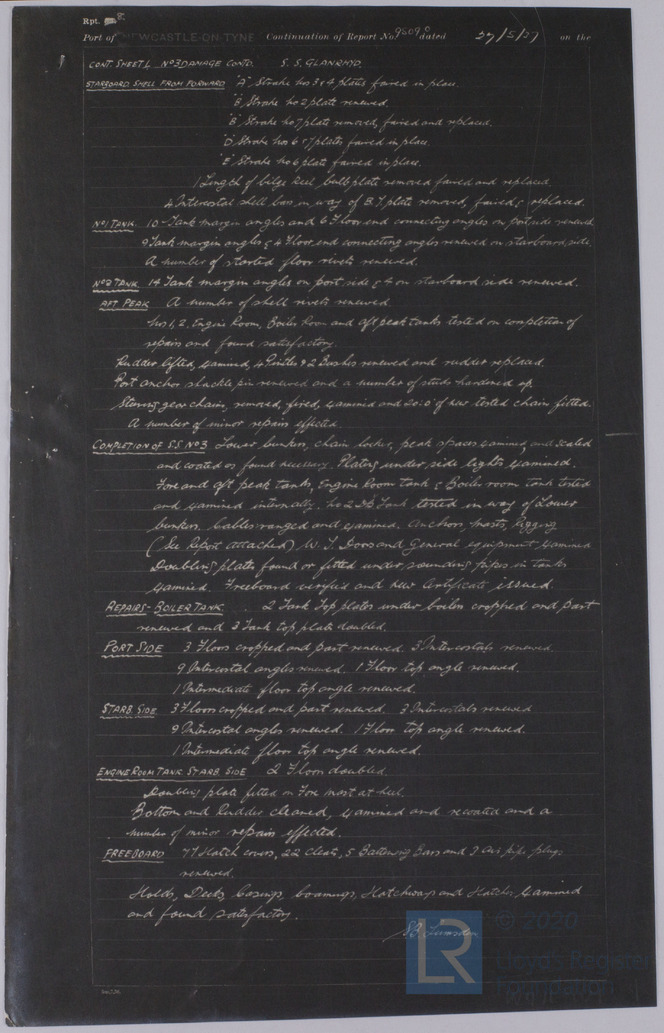 Rpt. 8
Port of NEWCASTLE-ON-TYNE Continuation of Report No. 96090 dated 27/5/37 on the
CONT. SHEET 1. No3 DAMAGE CONTD. S.S. GLANRHYD.
STARBOARD SHELL FROM FORWARD "A" Strake Nos 3 & 4 plates faired in place.
"B" Strake No 2 plate renewed.
"B" Strake No 7 plate removed, faired and replaced.
"D" Strake Nos 6 & 7 plates faired in place
"E" Strake No 6 plate faired in place.
1 Length of bilge keel bulb plate removed faired and replaced.
4 Intercostal shell bars in way of B.7. plate removed, faired & replaced.
No1 TANK. 10 - Tank margin angles and 6 Floor end connecting angles on port side renewed
9 Tank margin angles & 4 Floor end connecting angles renewed on starboard side.
A number of started floor rivets renewed.
No2 TANK. 14 Tank margin angles on port side & 4 on starboard side renewed.
AFT PEAK A number of shell rivets renewed
Nos 1, 2, Engine Room, Boiler Room and aft peak tanks tested on completion of
repairs and found satisfactory.
Rudder lifted, examined, 4 Pintles & 2 Bushes renewed and rudder replaced.
Port anchor shackle pin renewed and a number of studs hardened up.
Steering gear chain, removed, fired, examined and 20'-0" of new tested chain fitted.
A number of minor repairs effected.
COMPLETION OF S.S. No3 Lower bunkers, chain locker, peak spaces examined, and scaled
and coated as found necessary. Plating under side lights examined.
Fore and aft peak tanks, Engine Room tank & Boiler room tank tested
and examined internally. No 2 Tank tested in way of Lower
bunkers. Cables ranged and examined. Anchors, masts, Rigging
(See Report attached) W.T. Doors and General equipment examined
Doubling plates found or fitted under sounding pipes in tanks
examined. Freeboard verified and new Certificate issued.
REPAIRS - BOILER TANK 2 Tank Top plates under boilers cropped and part
renewed and 3 Tank top plates doubled.
PORT SIDE 3 Floors cropped and part renewed 3 Intercostals renewed.
9 Intercostal angles renewed. 1 Floor top angle renewed.
1 Intermediate floor top angle renewed.
STARB. SIDE 3 Floors cropped and part renewed 3 Intercostals renewed
9 Intercostal angles renewed. 1 Floor top angle renewed.
1 Intermediate floor top angle renewed.
ENGINE ROOM TANK. STARB. SIDE 2 Floors doubled.
Doubling plate fitted on Fore mast at heel.
Bottom and Rudder cleaned, examined and recoated and a
number of minor repairs effected.
FREEBOARD 77 Hatch covers, 22 Cleats, 5 Battening Bars and 3 Air pipe plugs
renewed.
Holds, Decks, Casings, Coamings, Hatchways and Hatches, examined
and found satisfactory.
LR © 2020
Lloyd's Register
Foundation